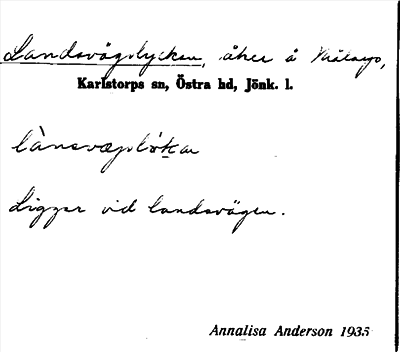 Landsvägslyckan, åker å Målarp,
Karlstorps sn, Östra hd, Jönk. l.
lànsvægslökan
Ligger vid landsvägen.
Annalisa Anderson 1935